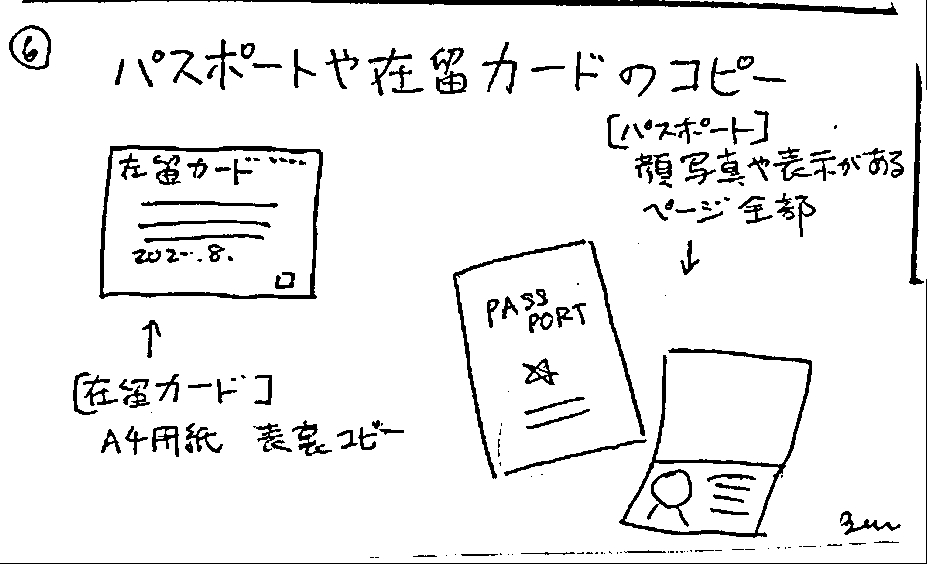 ⑥ パスポートや在留カードのコピー
[パスポート]
顔写真や表示がある
ページ全部
↓
在留カード
↑
[在留カード]
A4用紙 表裏コピー
PASS
PORT